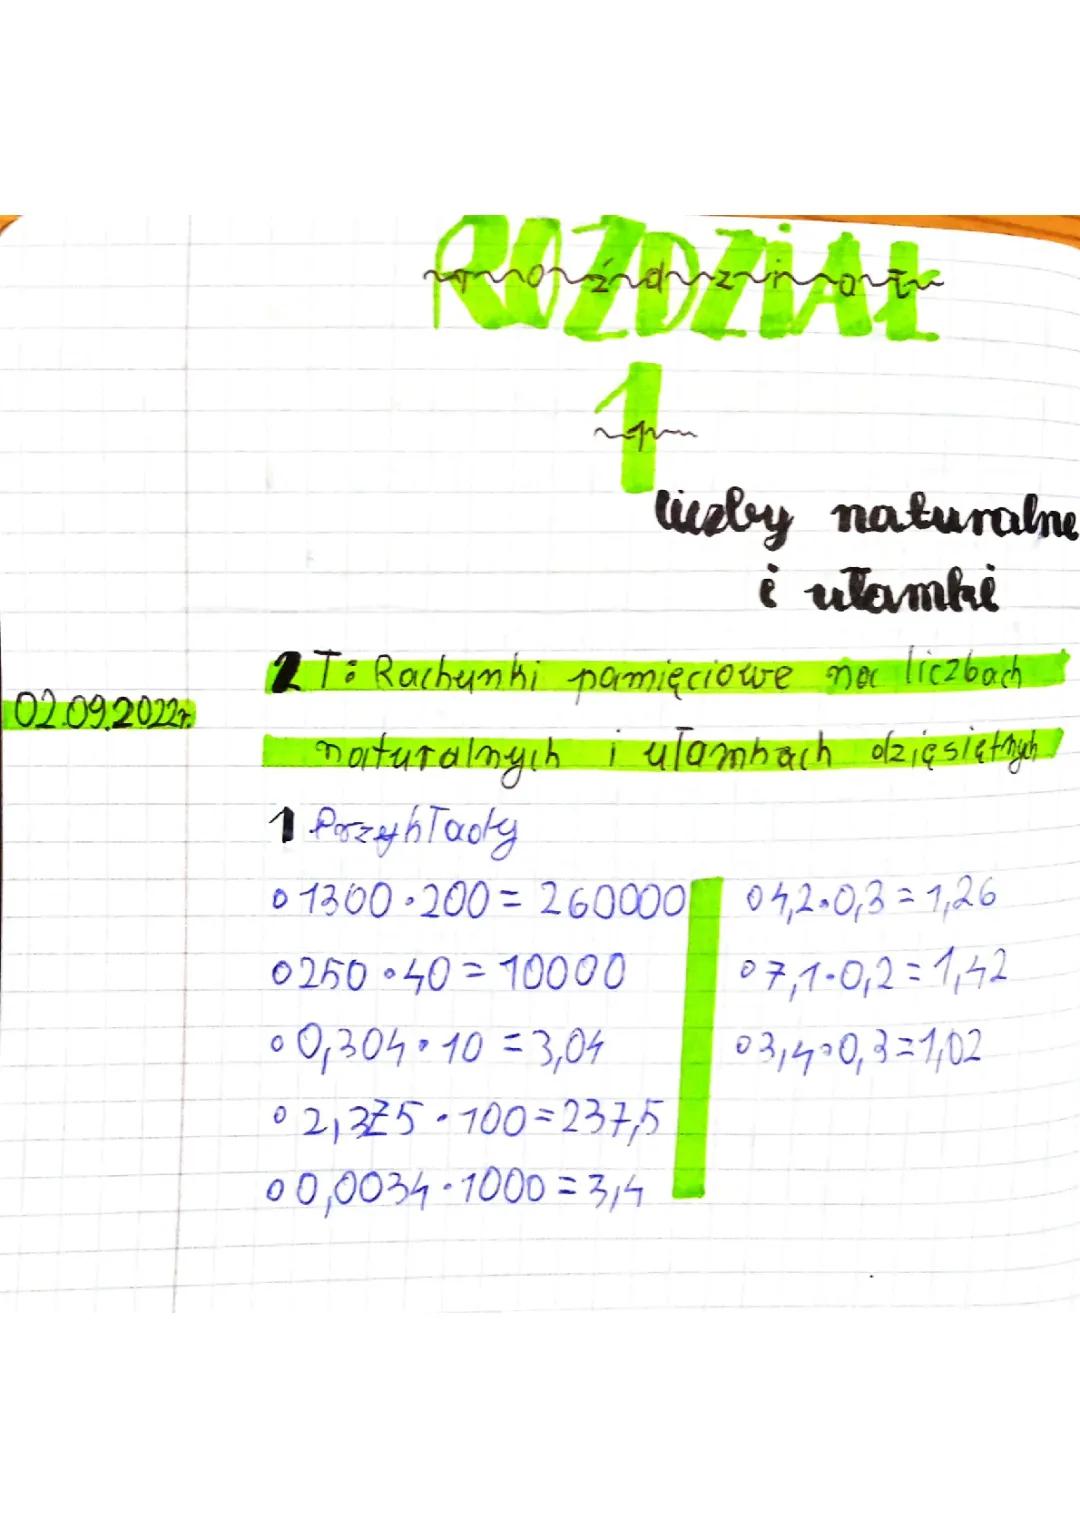 ROZDZIAŁ
rozdział
1
1
liczby naturalne
i ułamki
2 T: Rachunki pamięciowe na liczbach
02.09.2022r.
naturalnych i ułamkach dzięsiętnych
1 Przykłady
o 1300 · 200 = 260000
o 250 · 40 = 10000
o 0,304 · 10 = 3,04
o 2,375 · 100 = 237,5
o 0,0034 · 1000 = 3,4
o 4,2 · 0,3 = 1,26
o 7,1 · 0,2 = 1,42
o 3,4 · 0,3 = 1,02